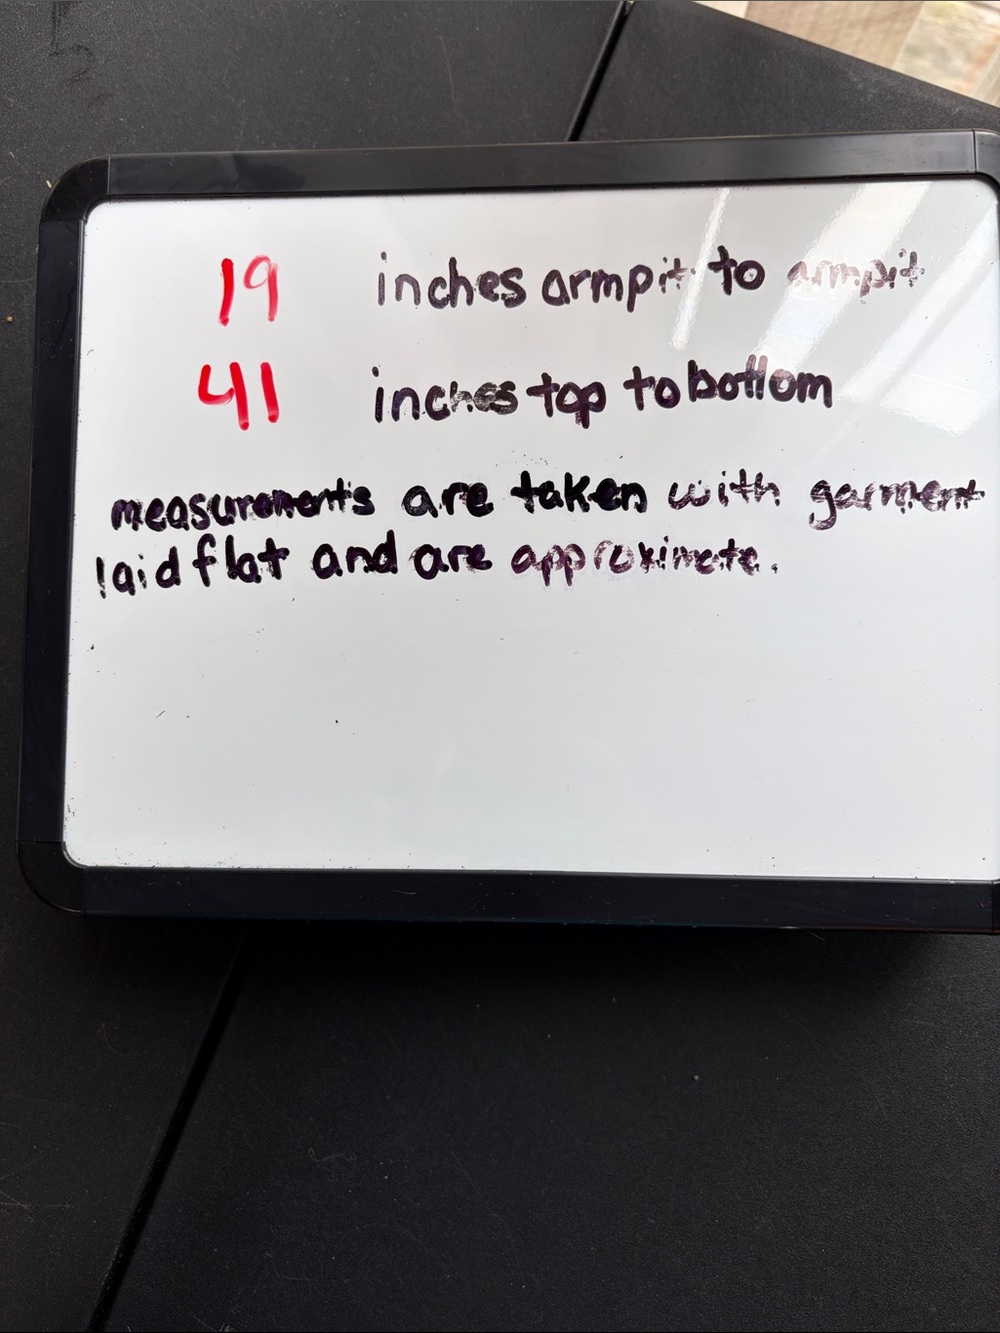 19 inches armpit to armpit
41 inches top to bottom
measurements are taken with garment
laid flat and are approximate.